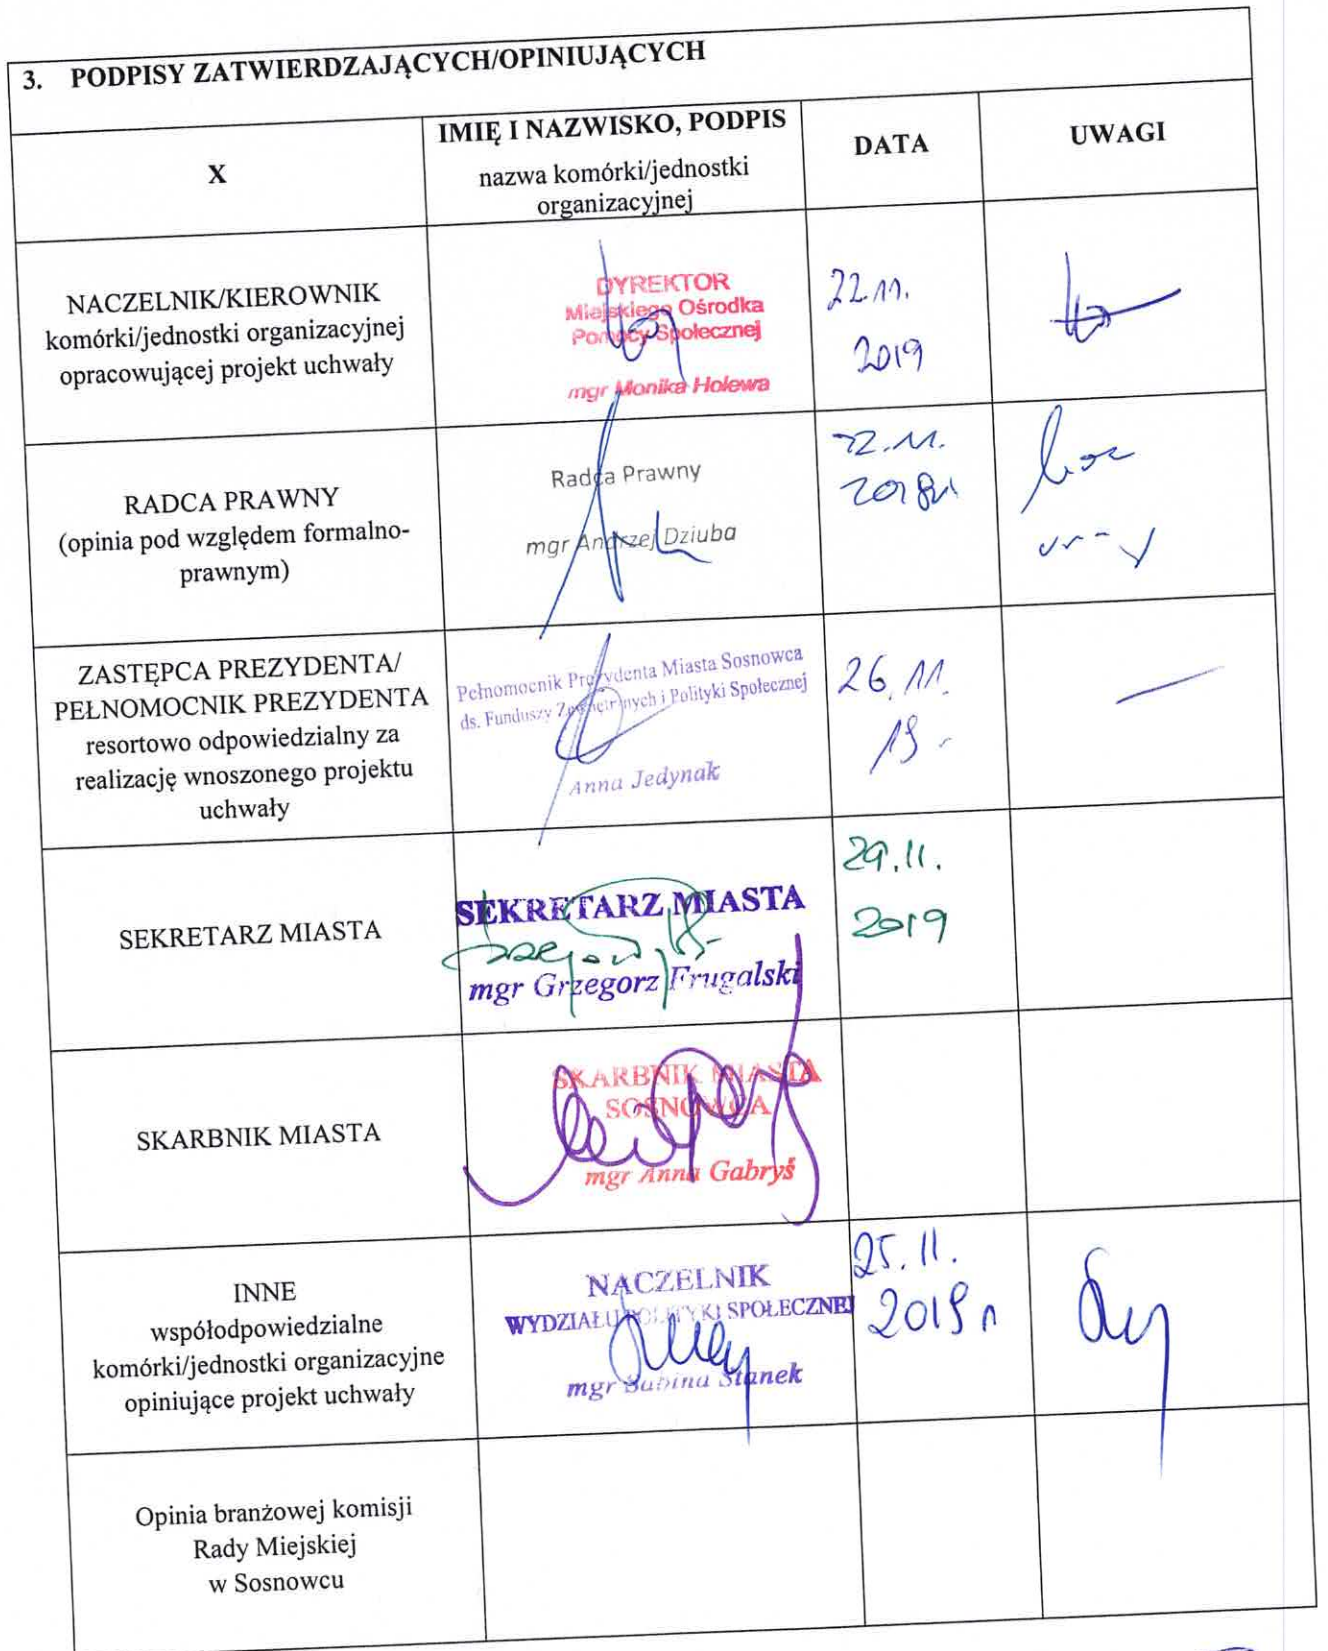 3. PODPISY ZATWIERDZAJĄCYCH/OPINIUJĄCYCH
X
IMIĘ I NAZWISKO, PODPIS
nazwa komórki/jednostki
organizacyjnej
DATA
UWAGI
NACZELNIK/KIEROWNIK
komórki/jednostki organizacyjnej
opracowującej projekt uchwały
DYREKTOR
Miejskiego Ośrodka
Pomocy Społecznej
mgr Monika Holewa
22.11.
2019
RADCA PRAWNY
(opinia pod względem formalno-
prawnym)
Radca Prawny
mgr Andrzej Dziuba
22.11.
ZASTĘPCA PREZYDENTA/
PEŁNOMOCNIK PREZYDENTA
resortowo odpowiedzialny za
realizację wnoszonego projektu
uchwały
Pełnomocnik Prezydenta Miasta Sosnowca
ds. Funduszy Zewnętrznych i Polityki Społecznej
Anna Jedynak
26.11.
19 -
SEKRETARZ MIASTA
SEKRETARZ MIASTA
mgr Grzegorz Frugalski
29.11.
2019
SKARBNIK MIASTA
SKARBNIK MIASTA
SOSNOWCA
mgr Anna Gabryś
INNE
współodpowiedzialne
komórki/jednostki organizacyjne
opiniujące projekt uchwały
NACZELNIK
WYDZIAŁU POLITYKI SPOŁECZNEJ
mgr Sabina Stanek
25.11.
2019 r
Opinia branżowej komisji
Rady Miejskiej
w Sosnowcu